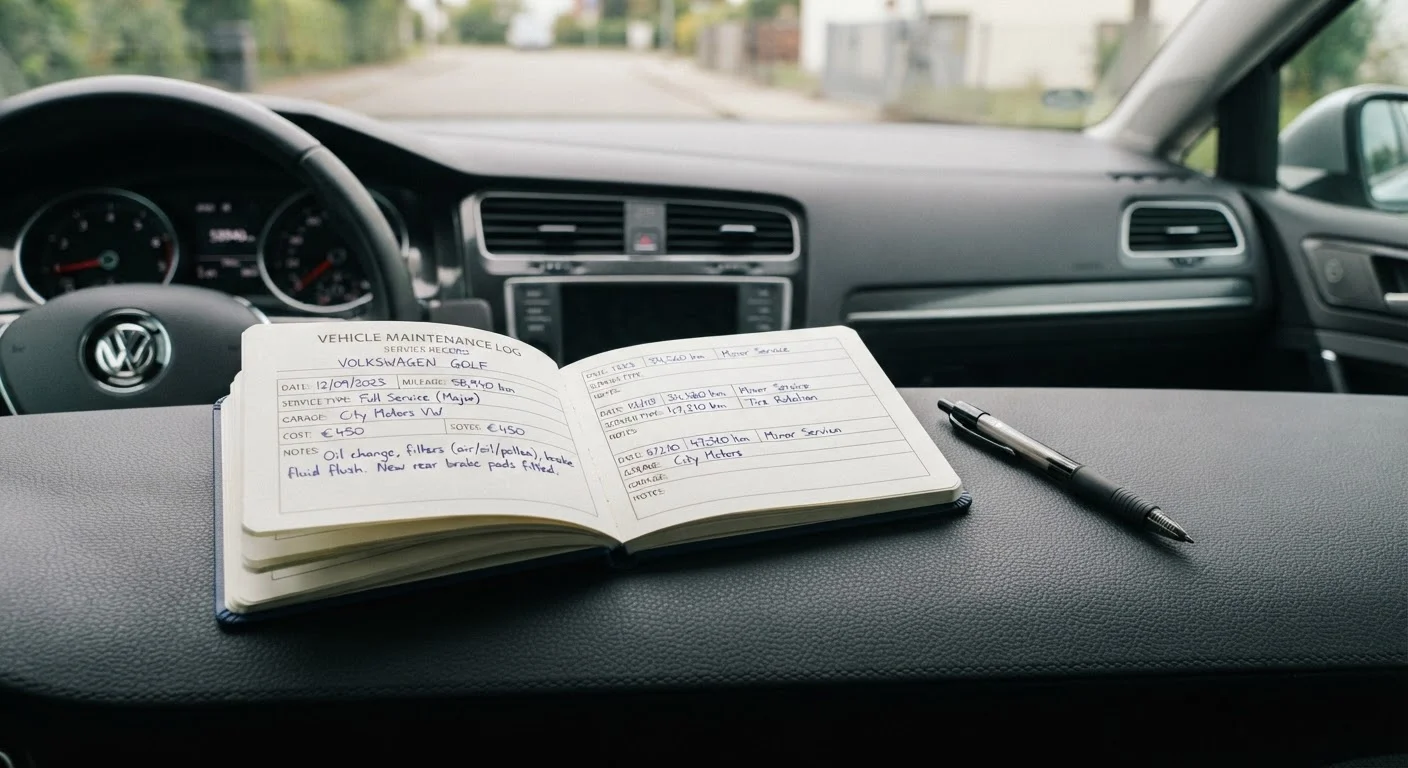 VEHICLE MAINTENANCE LOG
SERVIES RECORD
VOLKSWAGEN GOLF
DATE: 12/09/2023 MILEAGE: 58,940 km
SERVICE TYPE: Full Service (Major)
GARAGE: City Motors VW
COST: €450 SOTES: €450
NOTES Oil change, filters (air/oil/pollen), brake
fluid flush. New rear brake pads fitted.
km Minor Service
km Minor Service
km Tire Rotation
NOTES
47,310 km Minor Service
City Motors
NOTES: